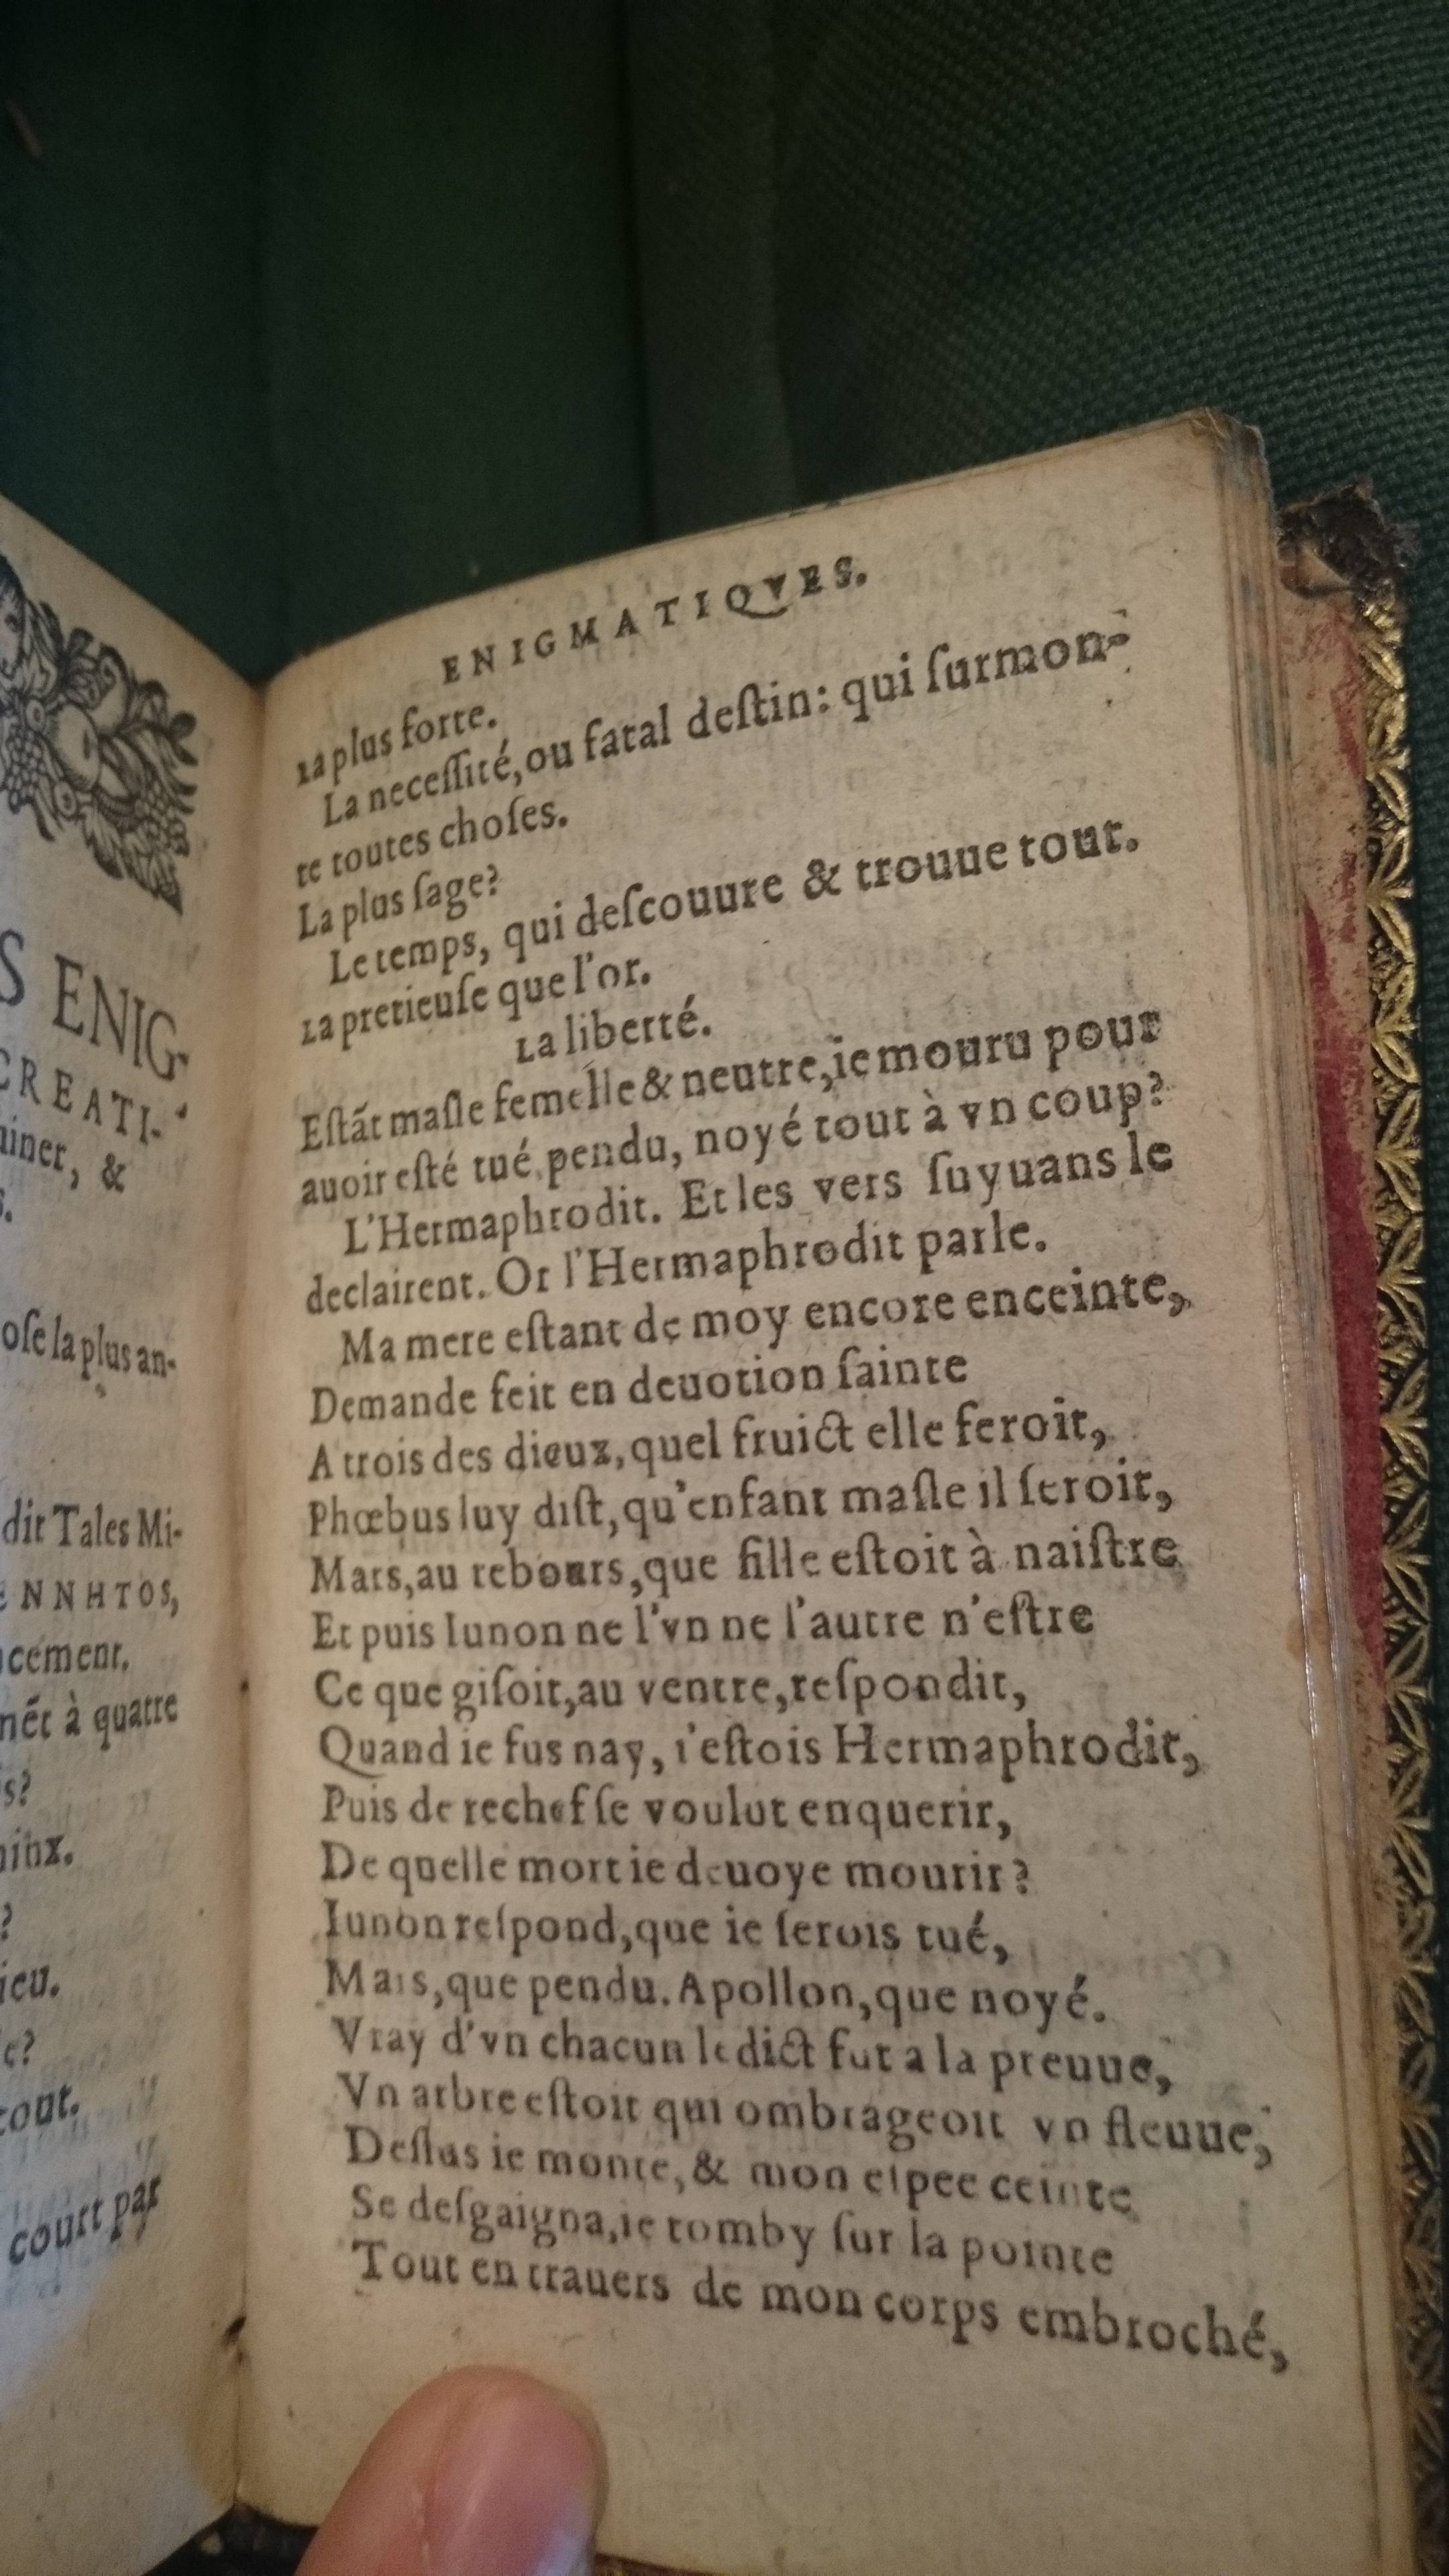 S ENIG-
CREATI-
uiner, &
s.
ose la plus an-
dit Tales Mi-
ΕΝΝΗΤΟS,
cement.
nét à quatre
s?
hinx.
?
ieu.
e?
tout.
court par
ENIGMATIQVES.
La plus forte.
La necessité, ou fatal destin: qui surmon-
te toutes choses.
La plus sage?
Le temps, qui descouure & trouue tout.
La pretieuse que l'or.
La liberté.
Estãt masle femelle & neutre, ie mouru pour
auoir esté tué pendu, noyé tout à vn coup?
L'Hermaphrodit. Et les vers suyuans le
declairent. Or l'Hermaphrodit parle.
Ma mere estant de moy encore enceinte,
Demande feit en deuotion sainte
A trois des dieux, quel fruict elle feroit,
Phœbus luy dist, qu'enfant masle il seroit,
Mars, au rebours, que fille estoit à naistre
Et puis Iunon ne l'vn ne l'autre n'estre
Ce que gisoit, au ventre, respondit,
Quand ie fus nay, i'estois Hermaphrodit,
Puis de rechef se voulut enquerir,
De quelle mort ie deuoye mourir?
Iunon respond, que ie serois tué,
Mars, que pendu. Apollon, que noyé.
Vray d'vn chacun le dict fut a la preuue,
Vn arbre estoit qui ombrageoit vn fleuue,
Dessus ie monte, & mon espee ceinte
Se desgaigna, ie tomby sur la pointe
Tout en trauers de mon corps embroché,